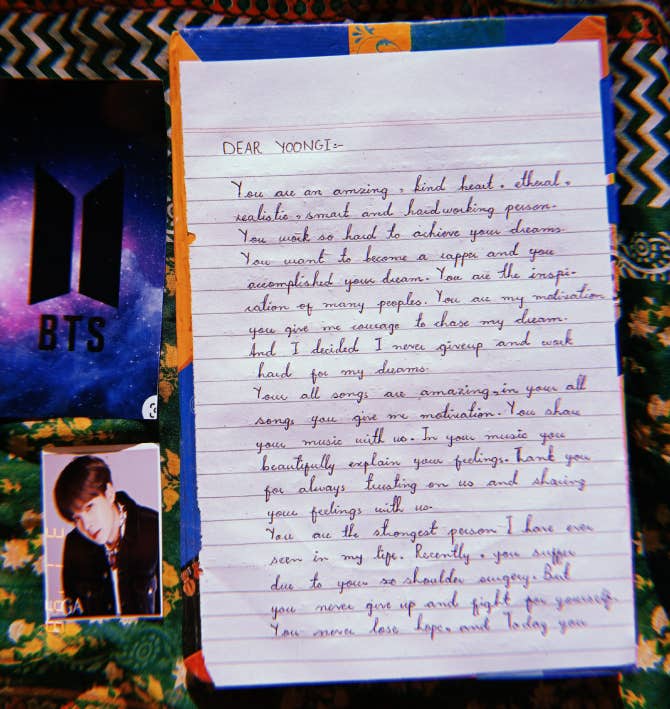 BTS
DEAR YOONGI:-
You are an amzing, kind heart, etheral,
realistic, smart and hardworking person.
You work so hard to achieve your dreams.
You want to become a rapper and you
accomplished your dream. You are the inspi-
ration of many peoples. You are my motivation
you give me courage to chase my dream.
And I decided I never giveup and work
hard for my dreams.
Your all songs are amazing, in your all
songs you give me motivation. You share
your music with us. In your music you
beautifully explain your feelings. Thank you
for always trusting on us and sharing
your feelings with us.
You are the strongest person I have ever
seen in my life. Recently, you suffer
due to your so shoulder surgery. But
you never give up and fight for yourself.
You never lose hope, and Today you
GA